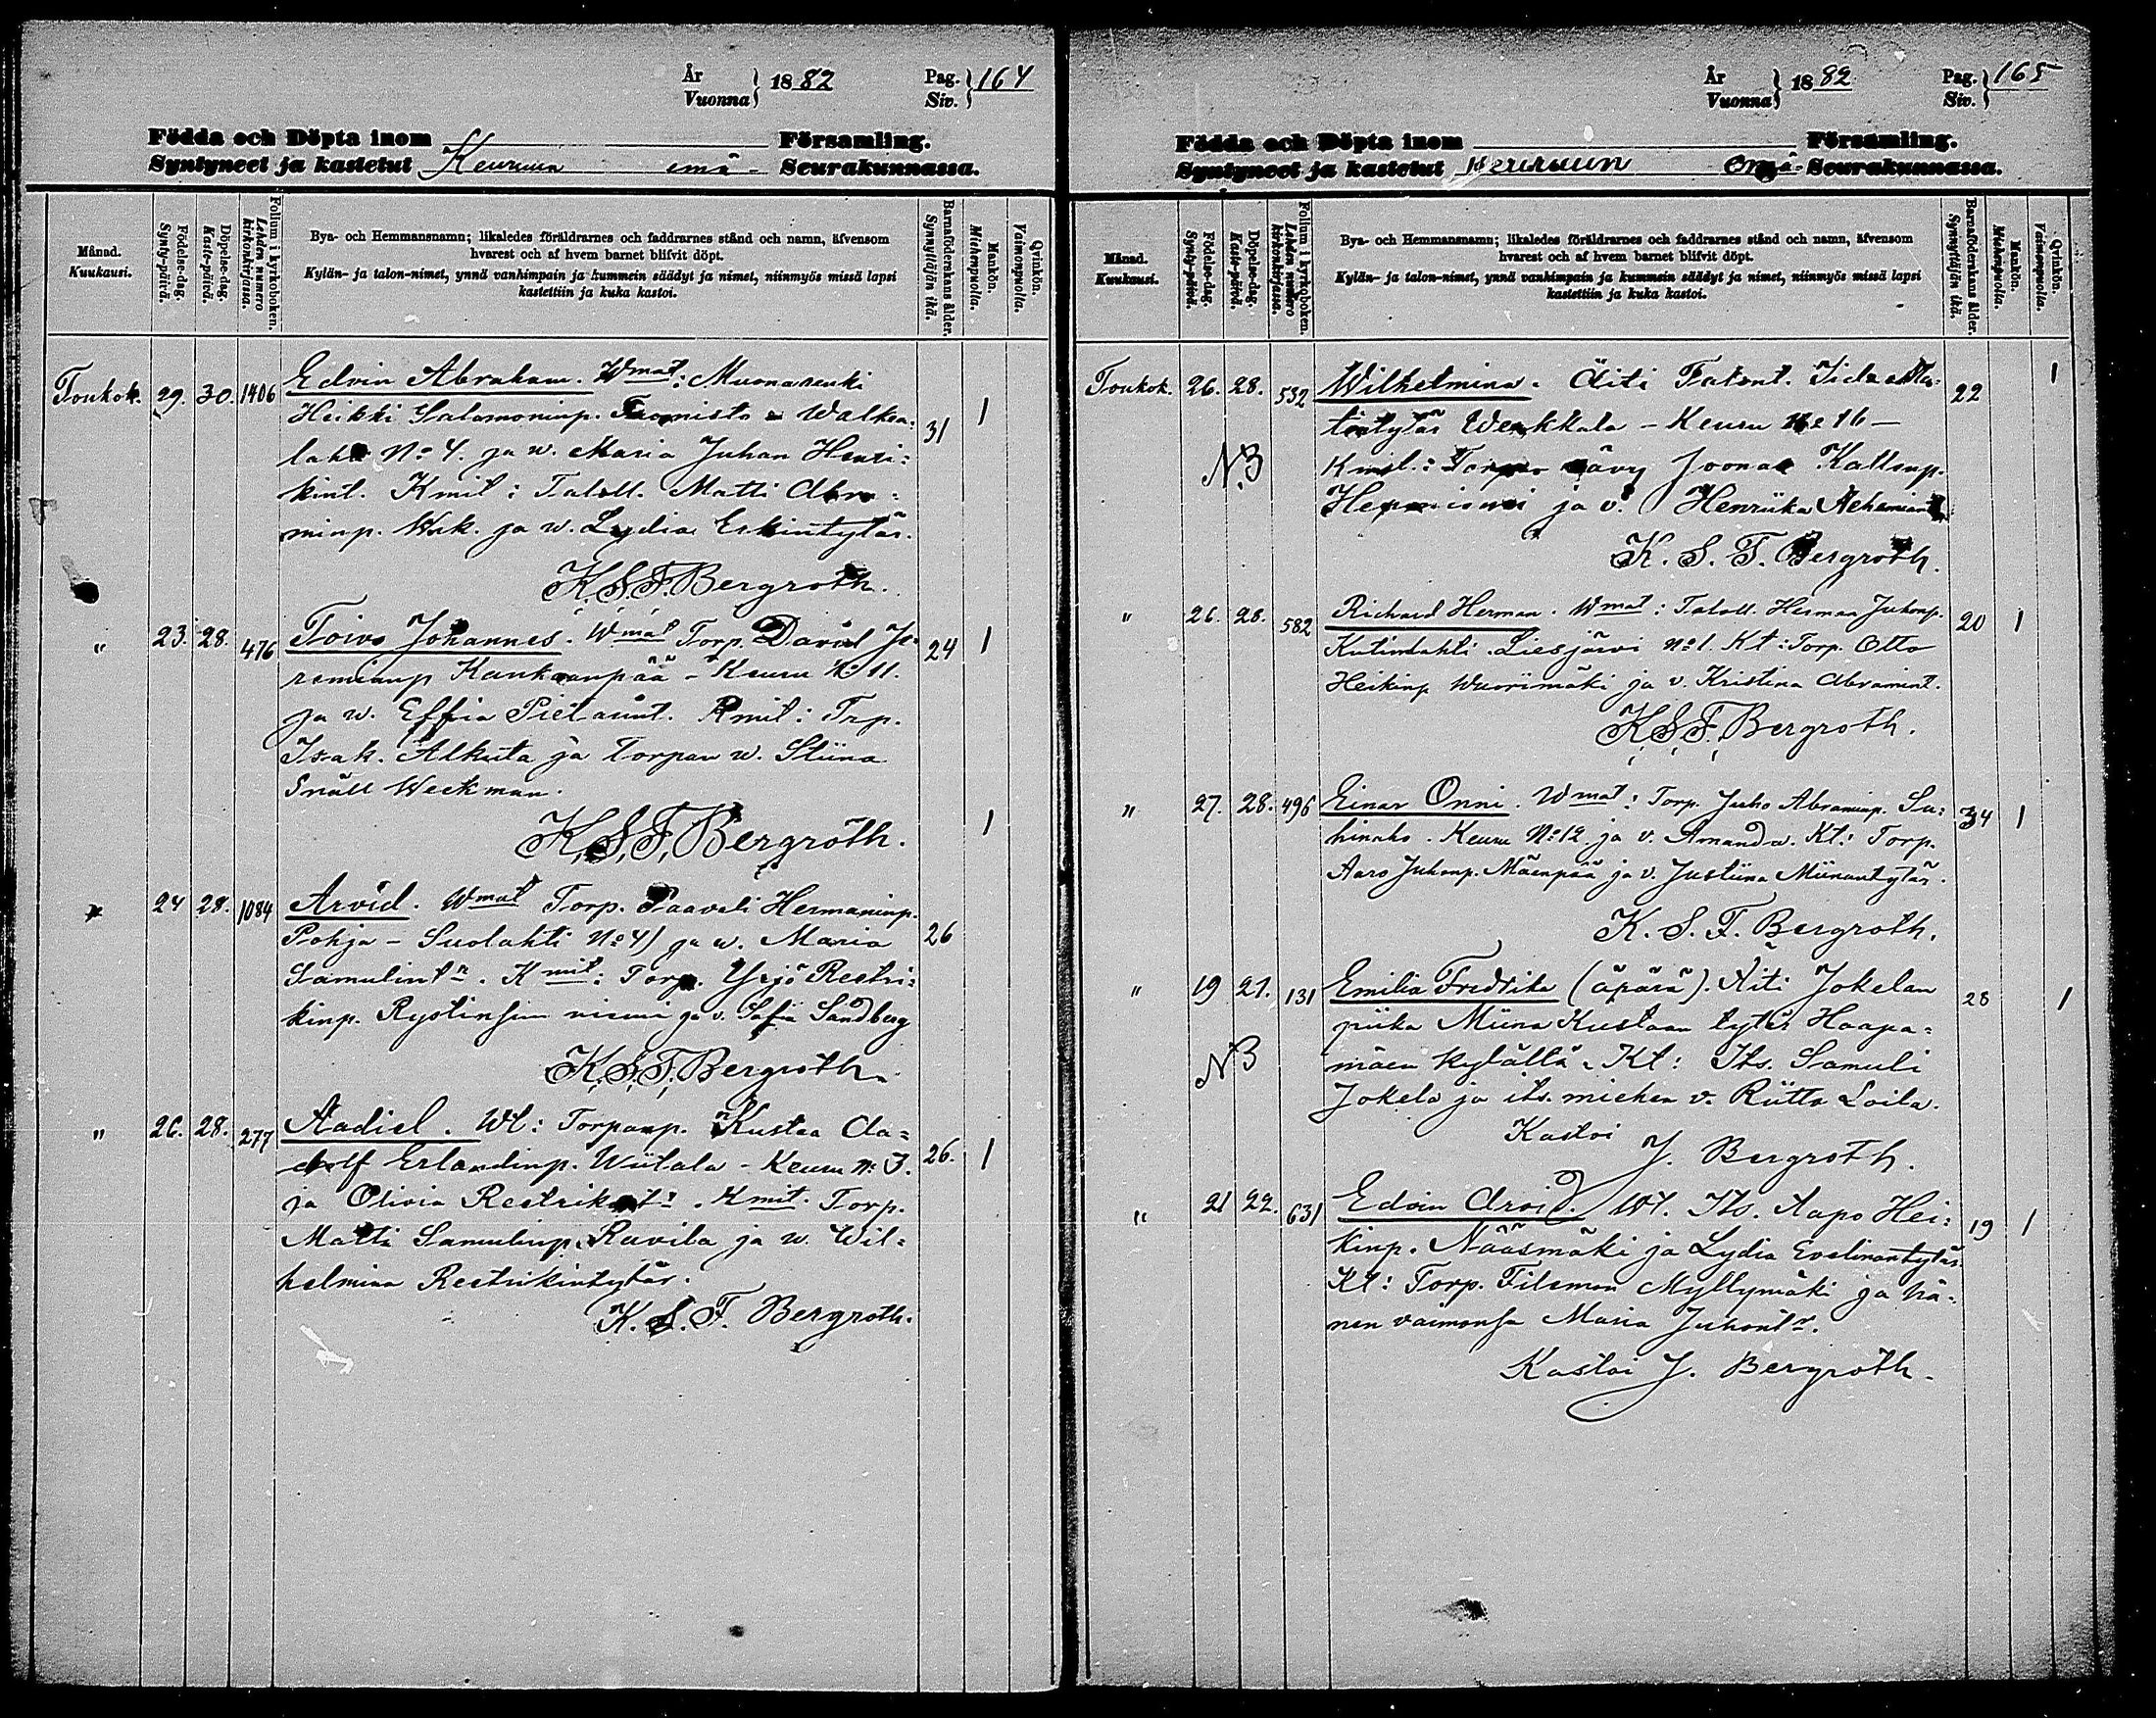 År
Vuonna } 1882
Pag.
Siv. } 164
Födda och Döpta inom Församling.
Syntyneet ja kastetut Keuruun emä- Seurakunnassa.
Månad.
Kuukausi.
Födelse-dag.
Synty-päivä.
Döpelse-dag.
Kaste-päivä.
Folium i kyrkoboken.
Lehden numero
kirkonkirjassa.
Bya- och Hemmansnamn; likaledes föräldrarnes och faddrarnes stånd och namn, äfvensom
hvarest och af hvem barnet blifvit döpt.
Kylän- ja talon-nimet, ynnä vanhimpain ja kummein säädyt ja nimet, niinmyös missä lapsi
kastettiin ja kuka kastoi.
Barnaföderskans ålder.
Synnyttäjän ikä.
Mankön.
Miehenpuolia.
Qvinkön.
Vaimonpuolia.
Toukok. 29. 30. 1406 Edvin Abraham. Wmat: Muonarenki
Heikki Salomoninp. Tuomisto - Walkea- 31 1
lahti No 4. ja w. Maria Juhan Henri-
kint. Kmit: Taloll. Matti Abra-
minp. ja w. Lydia Erkintytär.
K. S. F. Bergroth.
" 23. 28. 476 Toivo Johannes. Wmat Torp. David Je- 24 1
remianp Kankaanpää - Keuru No 11.
ja w. Effia Pietarint. Kmit: Trp.
Isak. Alkuta ja Torpan w. Stiina
Snäll Weckman.
K. S. F. Bergroth. 1
" 24 28. 1084 Arvid. Wmat Torp. Paavali Hermaninp.
Pohja - Suolahti No 4) ja w. Maria 26
Samulintr. Kmit: Torp. Yrjö Restri-
kinp. ja v. Sofia Sandberg
K. S. F. Bergroth.
" 26. 28. 277 Aadiel. Wt: Torpanp. Kustaa Aa-
dolf Erlandinp. Wiitala - Keuru No 3. 26. 1
ja Olivia Restrikintr. Kmit. Torp.
Matti Samulinp. Ruvila ja w. Wil-
helmina Restrikintytär.
K. S. F. Bergroth.
År
Vuonna } 1882
Pag.
Siv. } 165
Födda och Döpta inom Församling.
Syntyneet ja kastetut Keuruun emä- Seurakunnassa.
Månad.
Kuukausi.
Födelse-dag.
Synty-päivä.
Döpelse-dag.
Kaste-päivä.
Folium i kyrkoboken.
Lehden numero
kirkonkirjassa.
Bya- och Hemmansnamn; likaledes föräldrarnes och faddrarnes stånd och namn, äfvensom
hvarest och af hvem barnet blifvit döpt.
Kylän- ja talon-nimet, ynnä vanhimpain ja kummein säädyt ja nimet, niinmyös missä lapsi
kastettiin ja kuka kastoi.
Barnaföderskans ålder.
Synnyttäjän ikä.
Mankön.
Miehenpuolia.
Qvinkön.
Vaimonpuolia.
Toukok. 26. 28. 532 Wilhelmina. Äiti Talont. Iida Ma- 22 1
tintytär Werkkala - Keuru No 16 -
NB Kmit.: Torpan vävy Joonas Kallenp.
ja v. Henriika Nehemiant
K. S. F. Bergroth.
" 26. 28. 582 Richard Herman. Wmat: Taloll. Herman Juhonp. 20 1
Kutinlahti. Liesjärvi No 1. Kt: Torp. Otto
Heikinp Wuorimäki ja v. Kristina Abramint.
K. S. F. Bergroth.
" 27. 28. 496 Einar Onni. Wmat: Torp. Juho Abraminp. Su- 34 1
hinaho. Keuru No 12 ja v. Amanda. Kt: Torp.
Aaro Juhonp. Mäenpää ja v. Justiina Miinantytär.
K. S. F. Bergroth.
" 19 21. 131 Emilia Fredrika (äpärä). Äiti Jokelan 28 1
piika Miina Kustaan tytär Haapa-
NB mäen kylältä. Kt: Its. Samuli
Jokela ja its. miehen v. Riitta Loila.
Kastoi J. Bergroth.
" 21 22. 631 Edvin Arvid. Wt. Its. Aapo Hei- 19 1
kinp. Nääsmäki ja Lydia Evelinantytär.
Kt: Torp. Filemon Myllymäki ja hä-
nen vaimonsa Maria Juhontr.
Kastoi J. Bergroth.